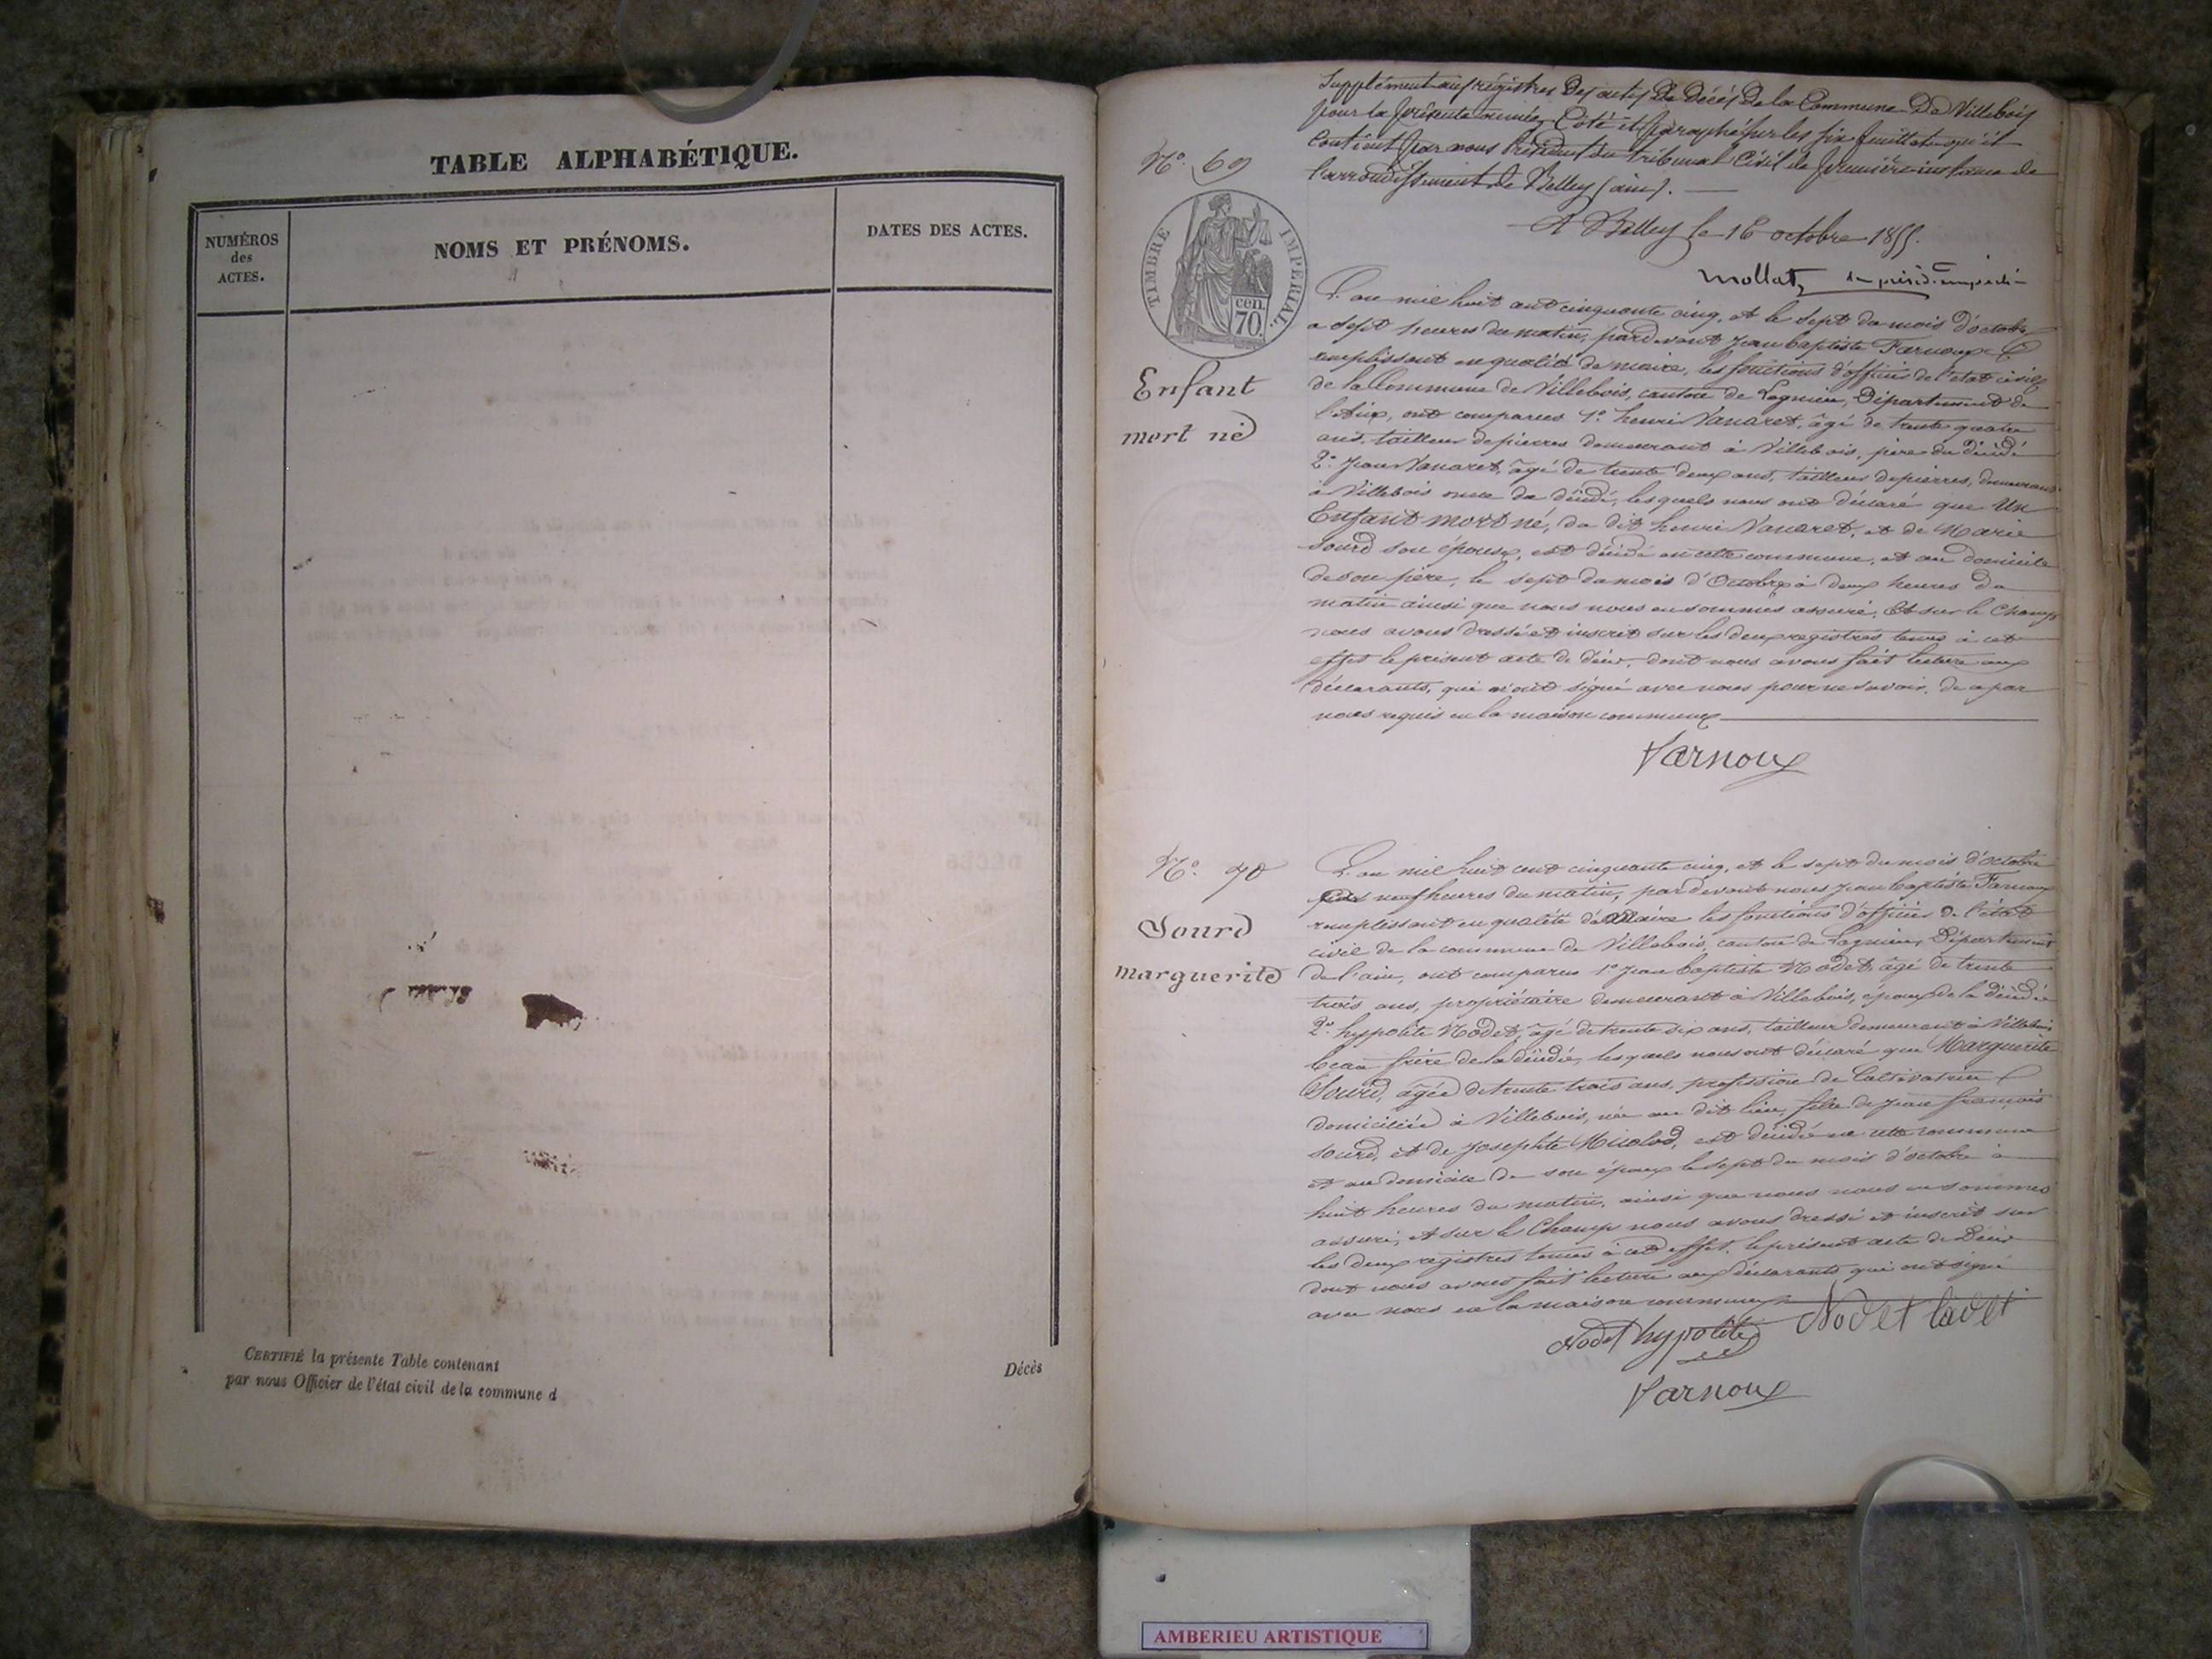 TABLE ALPHABÉTIQUE.
NUMÉROS
des
ACTES.
NOMS ET PRÉNOMS.
DATES DES ACTES.
CERTIFIÉ la présente Table contenant
Décès
par nous Officier de l'état civil de la commune d
Supplément aux régistres des actes de décès de la Commune De Villebois
pour la présente année, Coté et paraphé sur les six feuillets qu'il
Contient par nous Président du tribunal Civil de première instance de
l'arrondissement de Belley (ain). —
A Belley le 16 octobre 1855.
Mollat
N.o 69
TIMBRE IMPERIAL.
cen.
70.
Enfant
mort né
L'an mil huit cent cinquante cinq, et le sept du mois d'octobre
a sept heures du matin, pardevant Jean baptiste Farnoux
remplissant en qualité de maire, les fonctions d'officier de l'état civil
de la Commune de Villebois, canton de Lagnieu, Département de
l'Ain, ont comparus 1.o henri Vanaret, âgé de trente quatre
ans, tailleur de pierres demeurant à Villebois, père du décédé
2.o Jean Vanaret, âgé de trente deux ans, tailleur de pierres, demeurant
à Villebois oncle du décédé, lesquels nous ont déclaré que Un
Enfant mort né, du dit henri Vanaret, et de Marie
Sourd son épouse, est décédé en cette commune, et au domicile
de son père, le sept du mois d'Octobre à deux heures du
matin ainsi que nous nous en sommes assuré, Et sur le Champ
nous avons dressé et inscrit sur les deux registres tenus à cet
effet le présent acte de décès, dont nous avons fait lecture aux
déclarants, qui n'ont signé avec nous pour ne savoir, de ce par
nous requis en la maison commune
Farnoux
N.o 70
Sourd
marguerite
L'an mil huit cent cinquante cinq, et le sept du mois d'octobre
neuf heures du matin, pardevant nous Jean baptiste Farnoux
remplissant en qualité de Maire les fonctions d'officier de l'état
civil de la commune de Villebois, canton de Lagnieu, Département
de l'ain, ont comparus 1.o Jean baptiste Nodet, âgé de trente
trois ans, propriétaire demeurant à Villebois, époux de la décédée
2.o hyppolite Nodet, âgé de trente six ans, tailleur demeurant à Villebois
beau frère de la décédée, lesquels nous ont déclaré que Marguerite
Sourd, âgée de trente trois ans, profession de Cultivatrice
domiciliée à Villebois, née au dit lieu, fille de Jean françois
Sourd, et de Josephte Micolod, est décédée en cette commune
et au domicile de son époux le sept du mois d'octobre à
huit heures du matin, ainsi que nous nous en sommes
assuré, et sur le Champ nous avons dressé et inscrit sur
les deux registres tenus à cet effet, le présent acte de Décès
dont nous avons fait lecture aux déclarants qui ont signé
avec nous en la maison commune
Nodet hypolite Nodet Cadet
Farnoux
AMBERIEU ARTISTIQUE